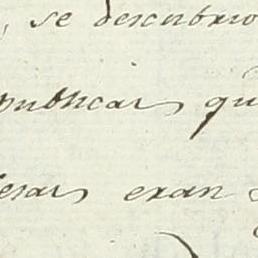 , se descubrio
publicas qu
eras eran